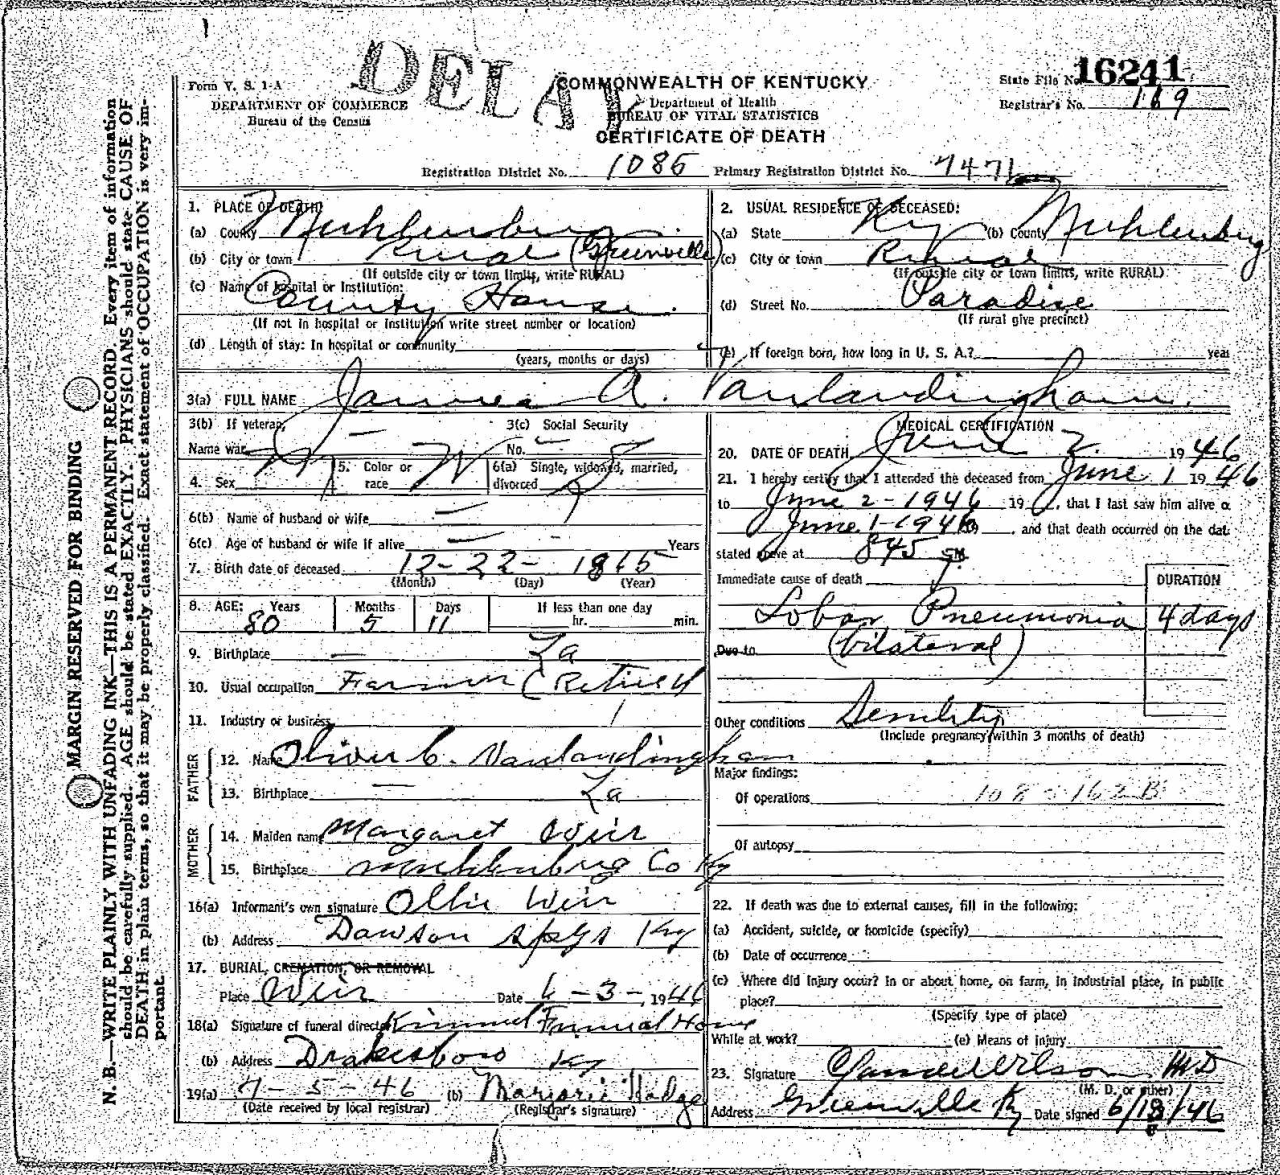 DELAY
Form V. S. 1-A
DEPARTMENT OF COMMERCE
Bureau of the Census
COMMONWEALTH OF KENTUCKY
Department of Health
BUREAU OF VITAL STATISTICS
CERTIFICATE OF DEATH
State File No. 16241
Registrar's No. 169
Registration District No. 1085 Primary Registration District No. 7471
MARGIN RESERVED FOR BINDING
N. B.—WRITE PLAINLY WITH UNFADING INK—THIS IS A PERMANENT RECORD. Every item of information
should be carefully supplied. AGE should be stated EXACTLY. PHYSICIANS should state CAUSE OF
DEATH in plain terms, so that it may be properly classified. Exact statement of OCCUPATION is very im-
portant.
1. PLACE OF DEATH:
(a) County Muhlenburg
(b) City or town Rural (Greenville)
(If outside city or town limits, write RURAL)
(c) Name of hospital or Institution:
County House.
(If not in hospital or Institution write street number or location)
(d) Length of stay: In hospital or community
(years, months or days)
2. USUAL RESIDENCE OF DECEASED:
(a) State Ky (b) County Muhlenburg
(c) City or town Rural
(If outside city or town limits, write RURAL)
(d) Street No. Paradise
(If rural give precinct)
(e) If foreign born, how long in U. S. A.? year
3(a) FULL NAME James A. Vanlandingham.
3(b) If veteran, 3(c) Social Security
Name war — No. —
4. Sex M 5. Color or race W 6(a) Single, widowed, married, divorced S
6(b) Name of husband or wife —
6(c) Age of husband or wife if alive — Years
7. Birth date of deceased 12-22-1865
(Month) (Day) (Year)
8. AGE: Years Months Days If less than one day
80 5 11 hr. min.
9. Birthplace — La
10. Usual occupation Farmer (Retired
11. Industry or business
FATHER
12. Name Oliver C. Vanlandingham
13. Birthplace — La
MOTHER
14. Maiden name Margaret Weir
15. Birthplace Muhlenburg Co Ky
16(a) Informant's own signature Ollie Weir
(b) Address Dawson Spgs Ky
17. BURIAL, CREMATION, OR REMOVAL
Place Weir Date 6-3-, 1946
18(a) Signature of funeral director Kimmel Funeral Home
(b) Address Drakesboro Ky
19(a) 7-5-46 (b) Marjorie Hodge
(Date received by local registrar) (Registrar's signature)
MEDICAL CERTIFICATION
20. DATE OF DEATH June 2. 1946
21. I hereby certify that I attended the deceased from June 1 1946
to June 2-1946 19 , that I last saw him alive o
June 1-1946, and that death occurred on the dat
stated above at 845 M
Immediate cause of death DURATION
Lobar Pneumonia 4 days
Due to (bilateral)
Other conditions Senility
(Include pregnancy within 3 months of death)
Major findings:
Of operations 108 - 162B
Of autopsy
22. If death was due to external causes, fill in the following:
(a) Accident, suicide, or homicide (specify)
(b) Date of occurrence
(c) Where did injury occur? In or about home, on farm, in industrial place, in public
place?
(Specify type of place)
While at work? (e) Means of injury
23. Signature Wilson MD
(M. D. or other)
Address Greenville Ky Date signed 6/18/46